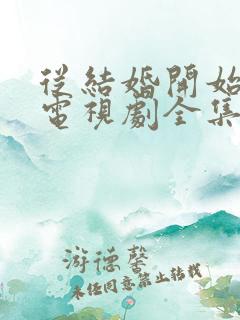 從結婚開始
電視劇全集
游德馨
未经同意禁止转载